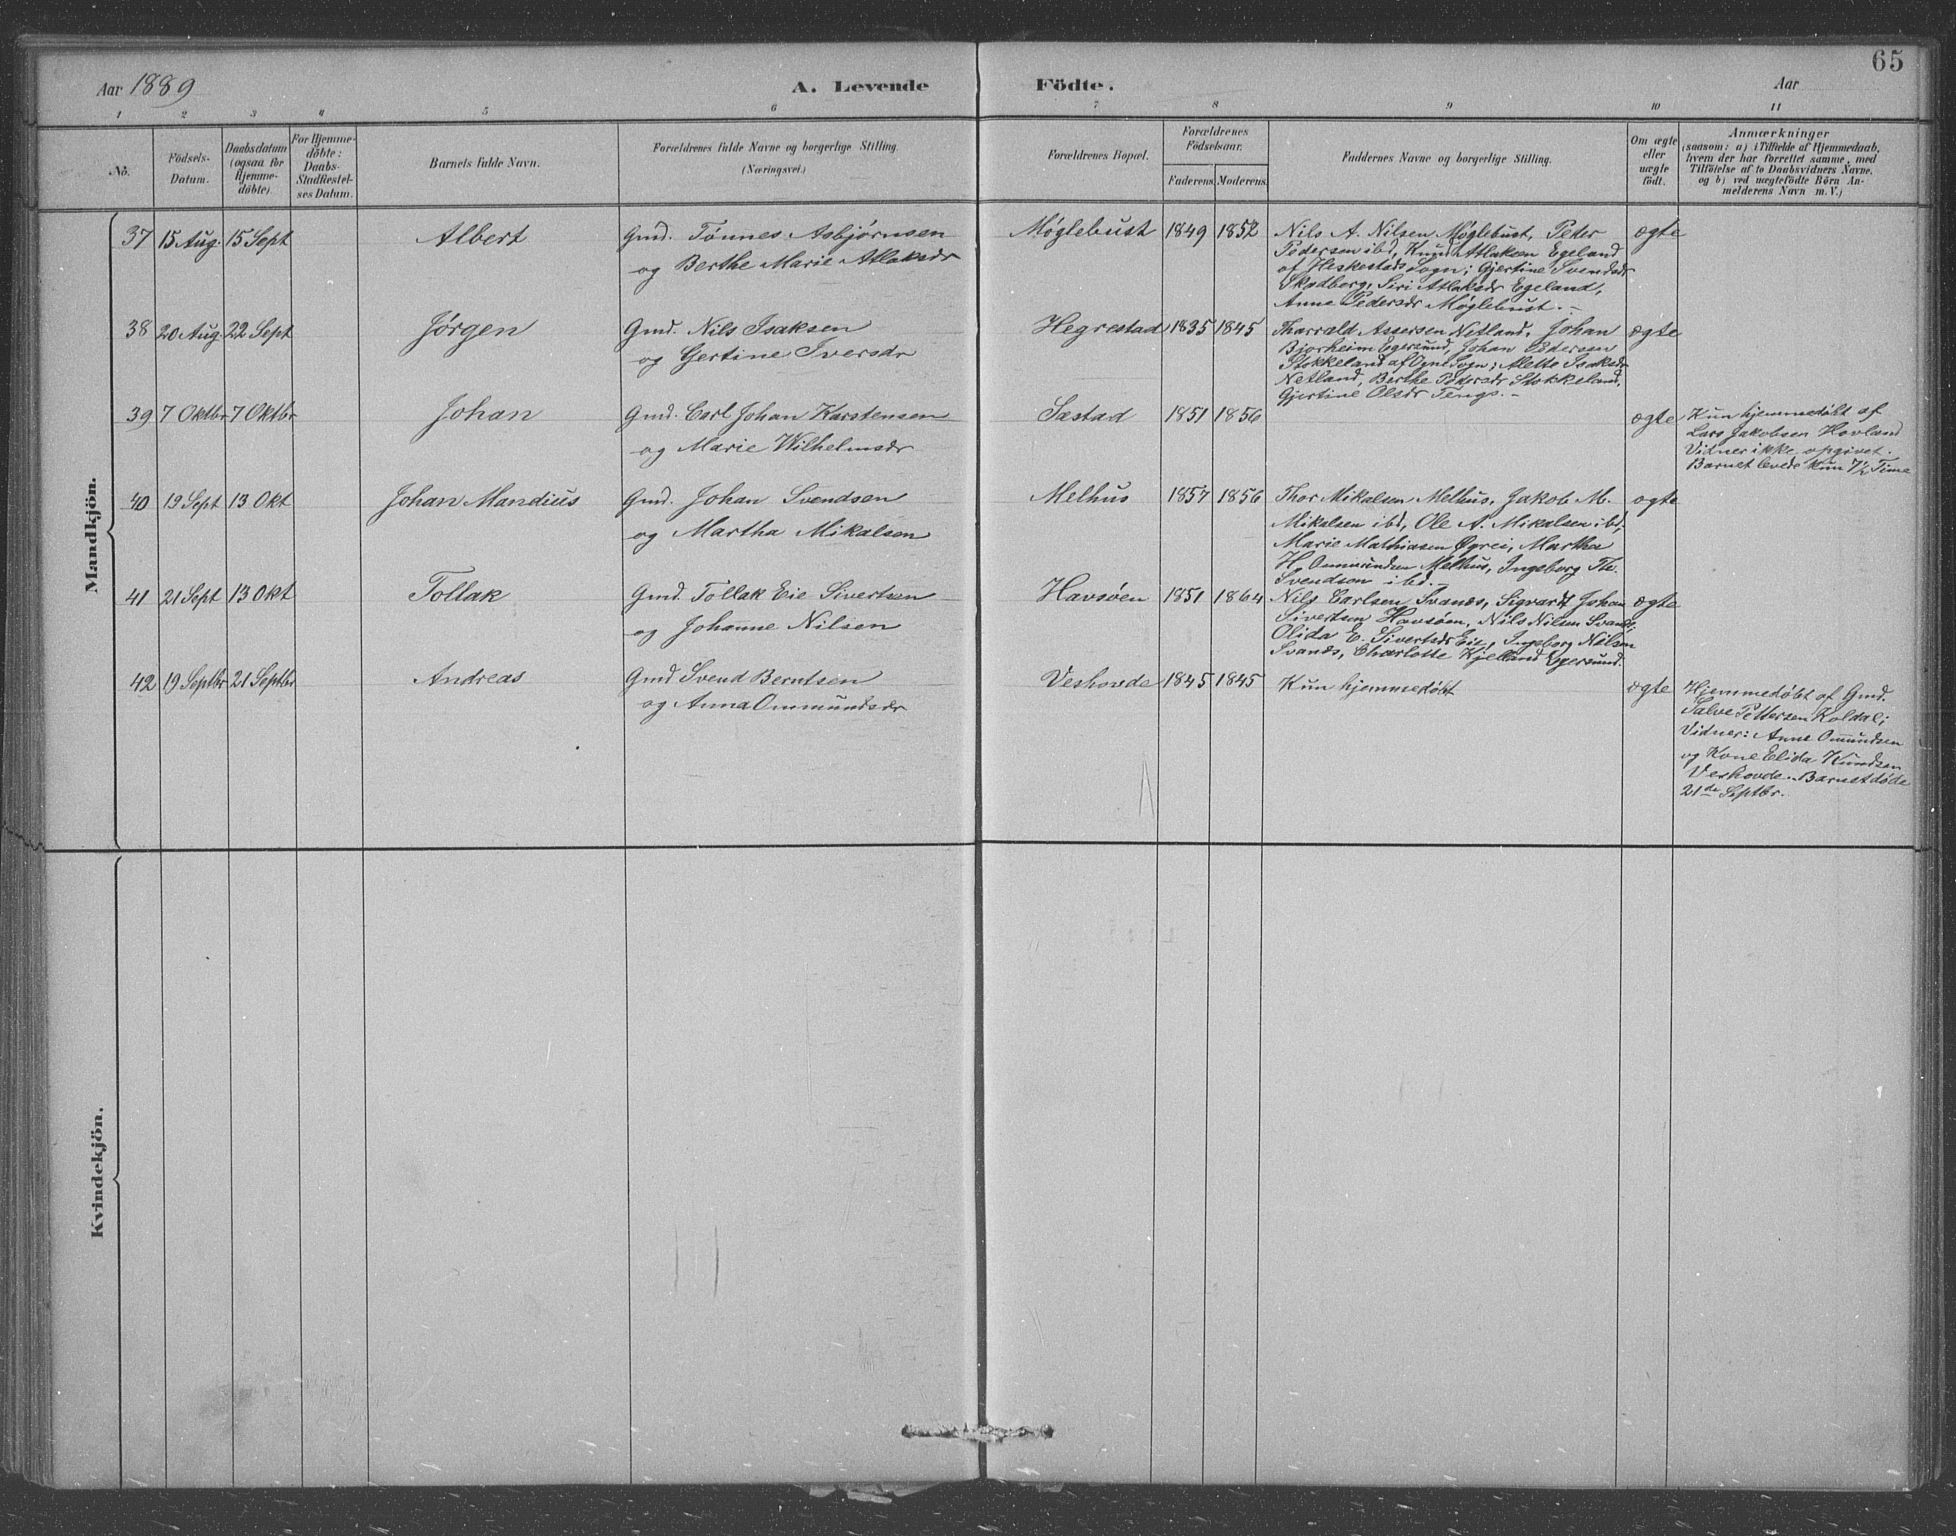 65
Aar 1889
A. Levende Födte.
Aar
1 2 3 4 5 6 7 8 9 10 11
No.
Födsels-
Datum.
Daabsdatum
(ogsaa for
Hjemme-
döbte).
For Hjemme-
döbte:
Daabs-
Stadfæstel-
ses Datum.
Barnets fulde Navn.
Forældrenes fulde Navne og borgerlige Stilling.
(Næringsvei.)
Forældrenes Bopæl.
Forældrenes
Födselsaar.
Faderens. Moderens.
Faddernes Navne og borgerlige Stilling.
Om ægte
eller
uægte
født.
Anmærkninger
(saasom: a) i Tilfælde af Hjemmedaab,
hvem der har forrettet samme, med
Tilföielse af to Daabsvidners Navne,
og b) ved uægtefödte Börn An-
melderens Navn m. V.)
Mandkjön.
37 15 Aug. 15 Sept Albert
Gmd. Tönnes Asbjørnsen
og Berthe Marie Atlaksdr
Møglebust 1849 1852
Nils A. Nilsen Møglebust, Peter
Pedersen ibd, Knud Atlaksen Egeland
af Heskestads Sogn; Gjertine Svendsdr
Skadberg, Siri Atlaksdr Egeland,
Anne Pedersdr Møglebust. -
ægte
38 20 Aug. 22 Sept Jørgen
Gmd. Nils Isaksen
og Gertine Iversdr
Hegrestad 1835 1845
Tharrald Assersen Netland, Johan
Bjorheim Egersund, Johan Pedersen
Stokkeland af Ogne Sogn; Alette Isaksdr
Netland, Berthe Pedersdr Stokkeland,
Gjertine Olsdr Tengs. -
ægte
39 7 Oktbr 7 Oktbr Johan
Gmd. Carl Johan Karstensen
og Marie Wilhelmsdr
Sæstad 1851 1856
ægte
Kun hjemmedøbt af
Lars Jakobsen Hovland
Vidner ikke opgivet.
Barnet levede kun 7½ Time
40 19 Sept 13 Okt Johan Mandius
Gmd. Johan Svendsen
og Martha Mikalsen
Melhus 1857 1856
Thor Mikalsen Melhus, Jakob M.
Mikalsen ibd, Ole A. Mikalsen ibd;
Marie Mathiasen Øgrei, Martha
H. Ommundsen Melhus, Ingeborg Th.
Svendsen ibd. -
ægte
41 21 Sept 13 Okt Tollak
Gmd Tollak Eie Sivertsen
og Johanne Nilsen
Havsøen 1851 1864
Nils Carlsen Svanæs, Sigvardt Johan
Sivertsen Havsøen, Nils Nilsen Svanæs;
Olida E. Sivertsdr Eie, Ingeborg Nilsen
Svanæs, Charlotte Kjelland Egersund.
ægte
42 19 Septbr 21 Septbr Andreas
Gmd Svend Berntsen
og Anna Ommundsdr
Veshovde 1845 1845
Kun hjemmedøbt
ægte
Hjemmedøbt af Gmd.
Salve Pettersen Koldal;
Vidner: Anne Omundsen
og Kone Elida Knudsen
Veshovde. Barnet døde
21de Septbr.
Kvindekjön.